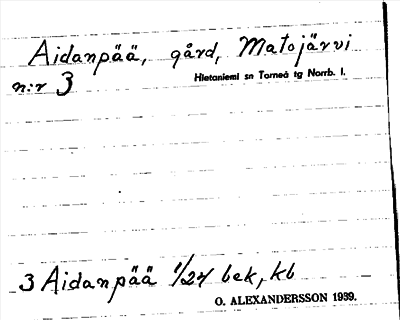 Aidanpää, gård, Matojärvi
n:r 3 Hietaniemi sn Torneå tg Norrb. l.
3 Aidanpää 1/24 bek, kb
O. ALEXANDERSSON 1939.